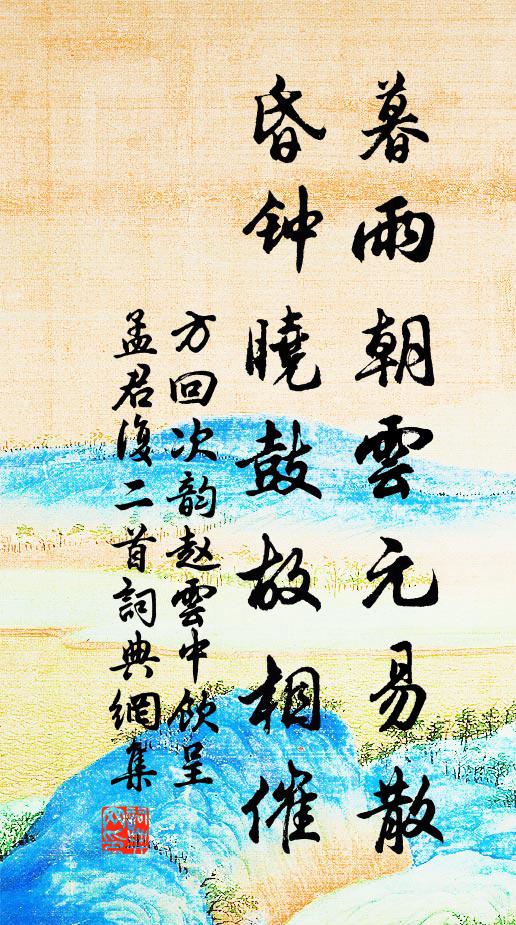 暮雨朝雲元易散
昏钟曉鼓故相催
方回次韵赵雲中飲呈
孟君復二首詞典網集